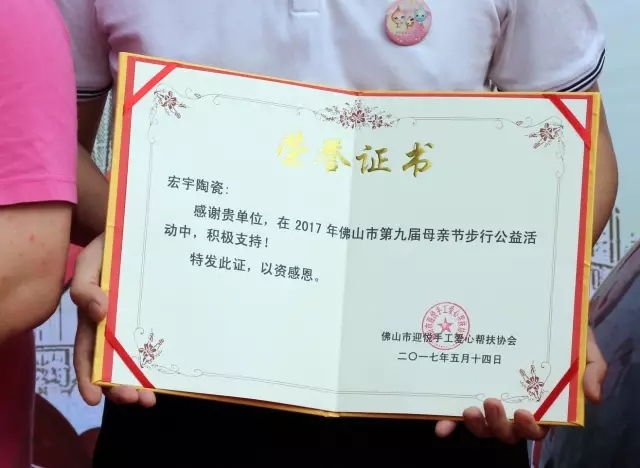 荣誉证书
宏宇陶瓷：
感谢贵单位，在2017年佛山市第九届母亲节步行公益活
动中，积极支持！
特发此证，以资感恩。
佛山市迎悦手工爱心帮扶协会
二〇一七年五月十四日